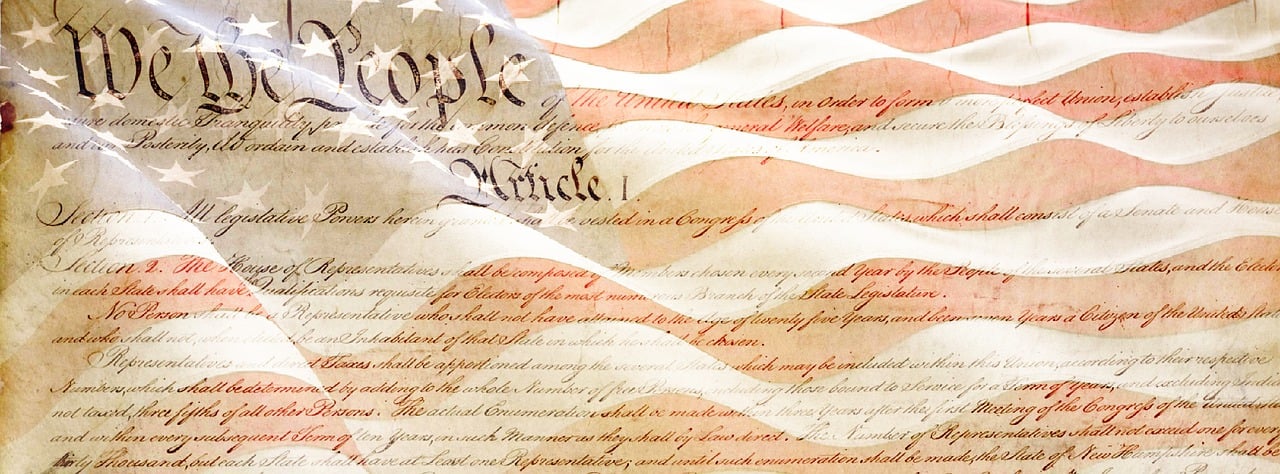 We the People of the United States, in Order to form a more perfect Union, establish Justice
insure domestic Tranquility, provide for the common defence general Welfare, and secure the Blessings of Liberty to ourselves
and our Posterity, do ordain and establish this Constitution for the United States of America.
Article. I.
Section. 1. All legislative Powers herein granted shall be vested in a Congress of the United States, which shall consist of a Senate and House
of Representatives.
Section. 2. The House of Representatives shall be composed of Members chosen every second Year by the People of the several States, and the Electors
in each State shall have Qualifications requisite for Electors of the most numerous Branch of the State Legislature.
No Person shall be a Representative who shall not have attained to the Age of twenty five Years, and been seven Years a Citizen of the United States
and who shall not, when elected, be an Inhabitant of that State in which he shall be chosen.
Representatives and direct Taxes shall be apportioned among the several States which may be included within this Union, according to their respective
Numbers, which shall be determined by adding to the whole Number of free Persons, including those bound to Service for a Term of Years, and excluding Indians
not taxed, three fifths of all other Persons. The actual Enumeration shall be made within three Years after the first Meeting of the Congress of the United States
and within every subsequent Term of ten Years, in such Manner as they shall by Law direct. The Number of Representatives shall not exceed one for every
thirty Thousand, but each State shall have at Least one Representative; and until such enumeration shall be made, the State of New Hampshire shall be